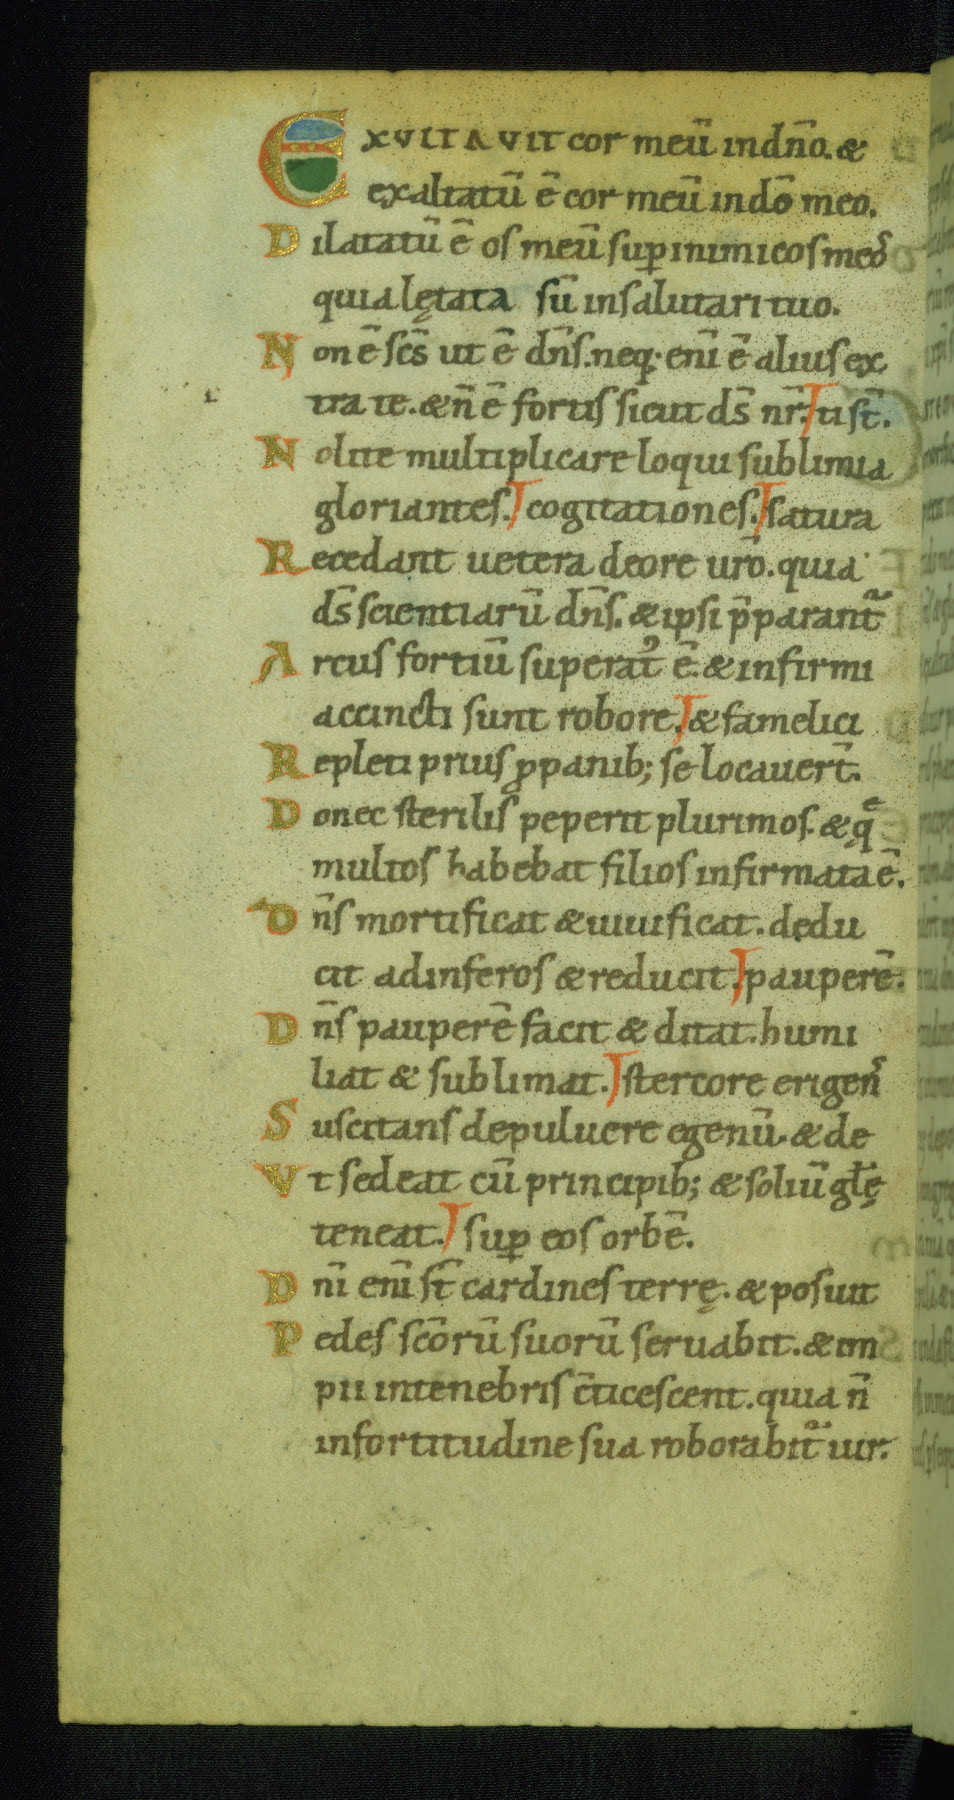 EXVLTAVIT cor meū in dn̄o. &
exaltatū ē cor meū in dō meo.
Dilatatū ē os meū sup̱ inimicos meoꝰ
quia lętata sū in salutari tuo.
Non ē sc̄s ut ē dn̄s. neq; enī ē alius ex
tra te. & n̄ ē fortis sicut ds̄ nr̄. ti st̄.
Nolite multiplicare loqui sublimia
gloriantes. cogitationes. satura
Recedant uetera de ore ur̄o. quia
ds̄ scientiarū dn̄s. & ipsi p̄parant᷑
Arcus fortiū superatꝰ ē. & infirmi
accincti sunt robore. & famelici
Repleti prius ꝓ panib; se locauert̄.
Donec sterilis peperit plurimos. & q̨
multos habebat filios infirmata ē.
Dn̄s mortificat & uiuificat. dedu
cit ad inferos & reducit. pauperē.
Dn̄s pauperē facit & ditat. humi
liat & sublimat. stercore erigenꝰ
Suscitans de puluere egenū. & de
Vt sedeat cū principib; & soliū gl̄ę
teneat. sup̱ eos orbē.
Dn̄i enī st̄ cardines terrę. & posuit
Pedes sc̄orū suorū seruabit. & im
pii in tenebris c̄ticescent. quia n̄
in fortitudine sua roborabit᷑ uir.